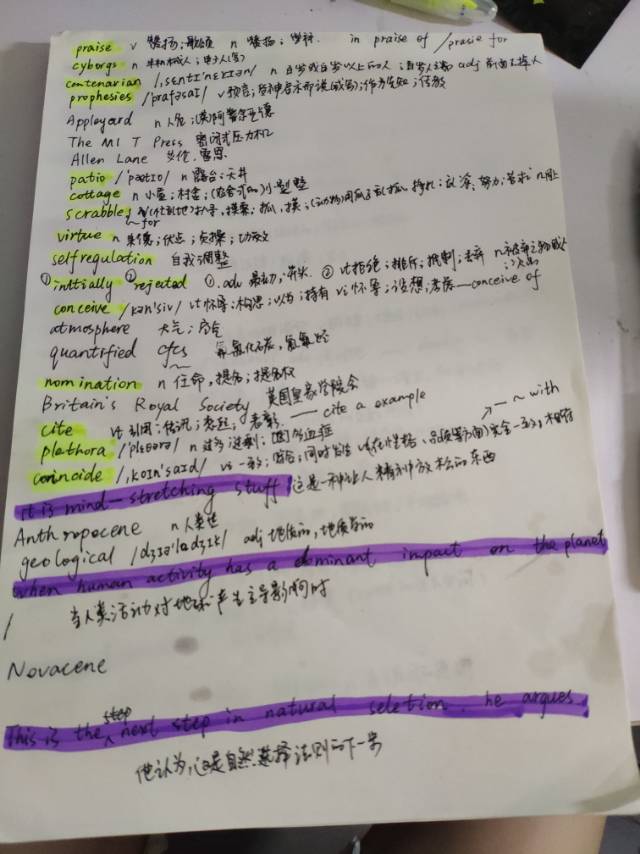 praise v 赞扬;歌颂 n 赞扬; in praise of /prasie for
cyborgs n 半机械人;电子人(等)
centenarian /,sentɪ'neərɪən/ n 百岁或百岁以上的人; adj
prophesies /'prɒfəsaɪ/ v 预言;
Appleyard n 人名;(英)阿普尔亚德
The MI T Press 密闭式压力机
Allen Lane 艾伦.雷恩
patio /'pætɪo/ n 露台;天井
cottage n 小屋;村舍;(农舍式的)小别墅
scrabble v(忙乱地)扒寻,摸索;抓,摸;
~ for
virtue n 美德;优点;贞操;功效
self regulation 自我调整
①initially ②rejected ①.adv 最初;开头 ②vt拒绝;排斥;抵制;丢弃
conceive /kən'siv/ vt怀孕;构思;以为;持有 vi怀孕;设想;考虑—conceive of
atmosphere 大气;
quantified cfcs 氟氯化碳,氯氟烃
~
nomination n 任命,提名;提名权
Britain's Royal Society 英国皇家学院会
cite vt 引用;传讯;表彰 —— cite a example
plethora /'pleθərə/ n 过多;过剩;[医]多血症
coincide /,kɔɪn'saɪd/ vi 一致;吻合;同时发生 ~ with
it is mind-stretching stuff 这是一种让人精神放松的东西
Anthropocene n 人类世
geological /dʒɪə'lɑdʒɪk/ adj 地质的,地质学的
when human activity has a dominant impact on the planet
/ 当人类活动对地球产生主导影响时
Novacene
This is the step next step in natural seletion, he argues
他认为,这是自然选择法则的下一步